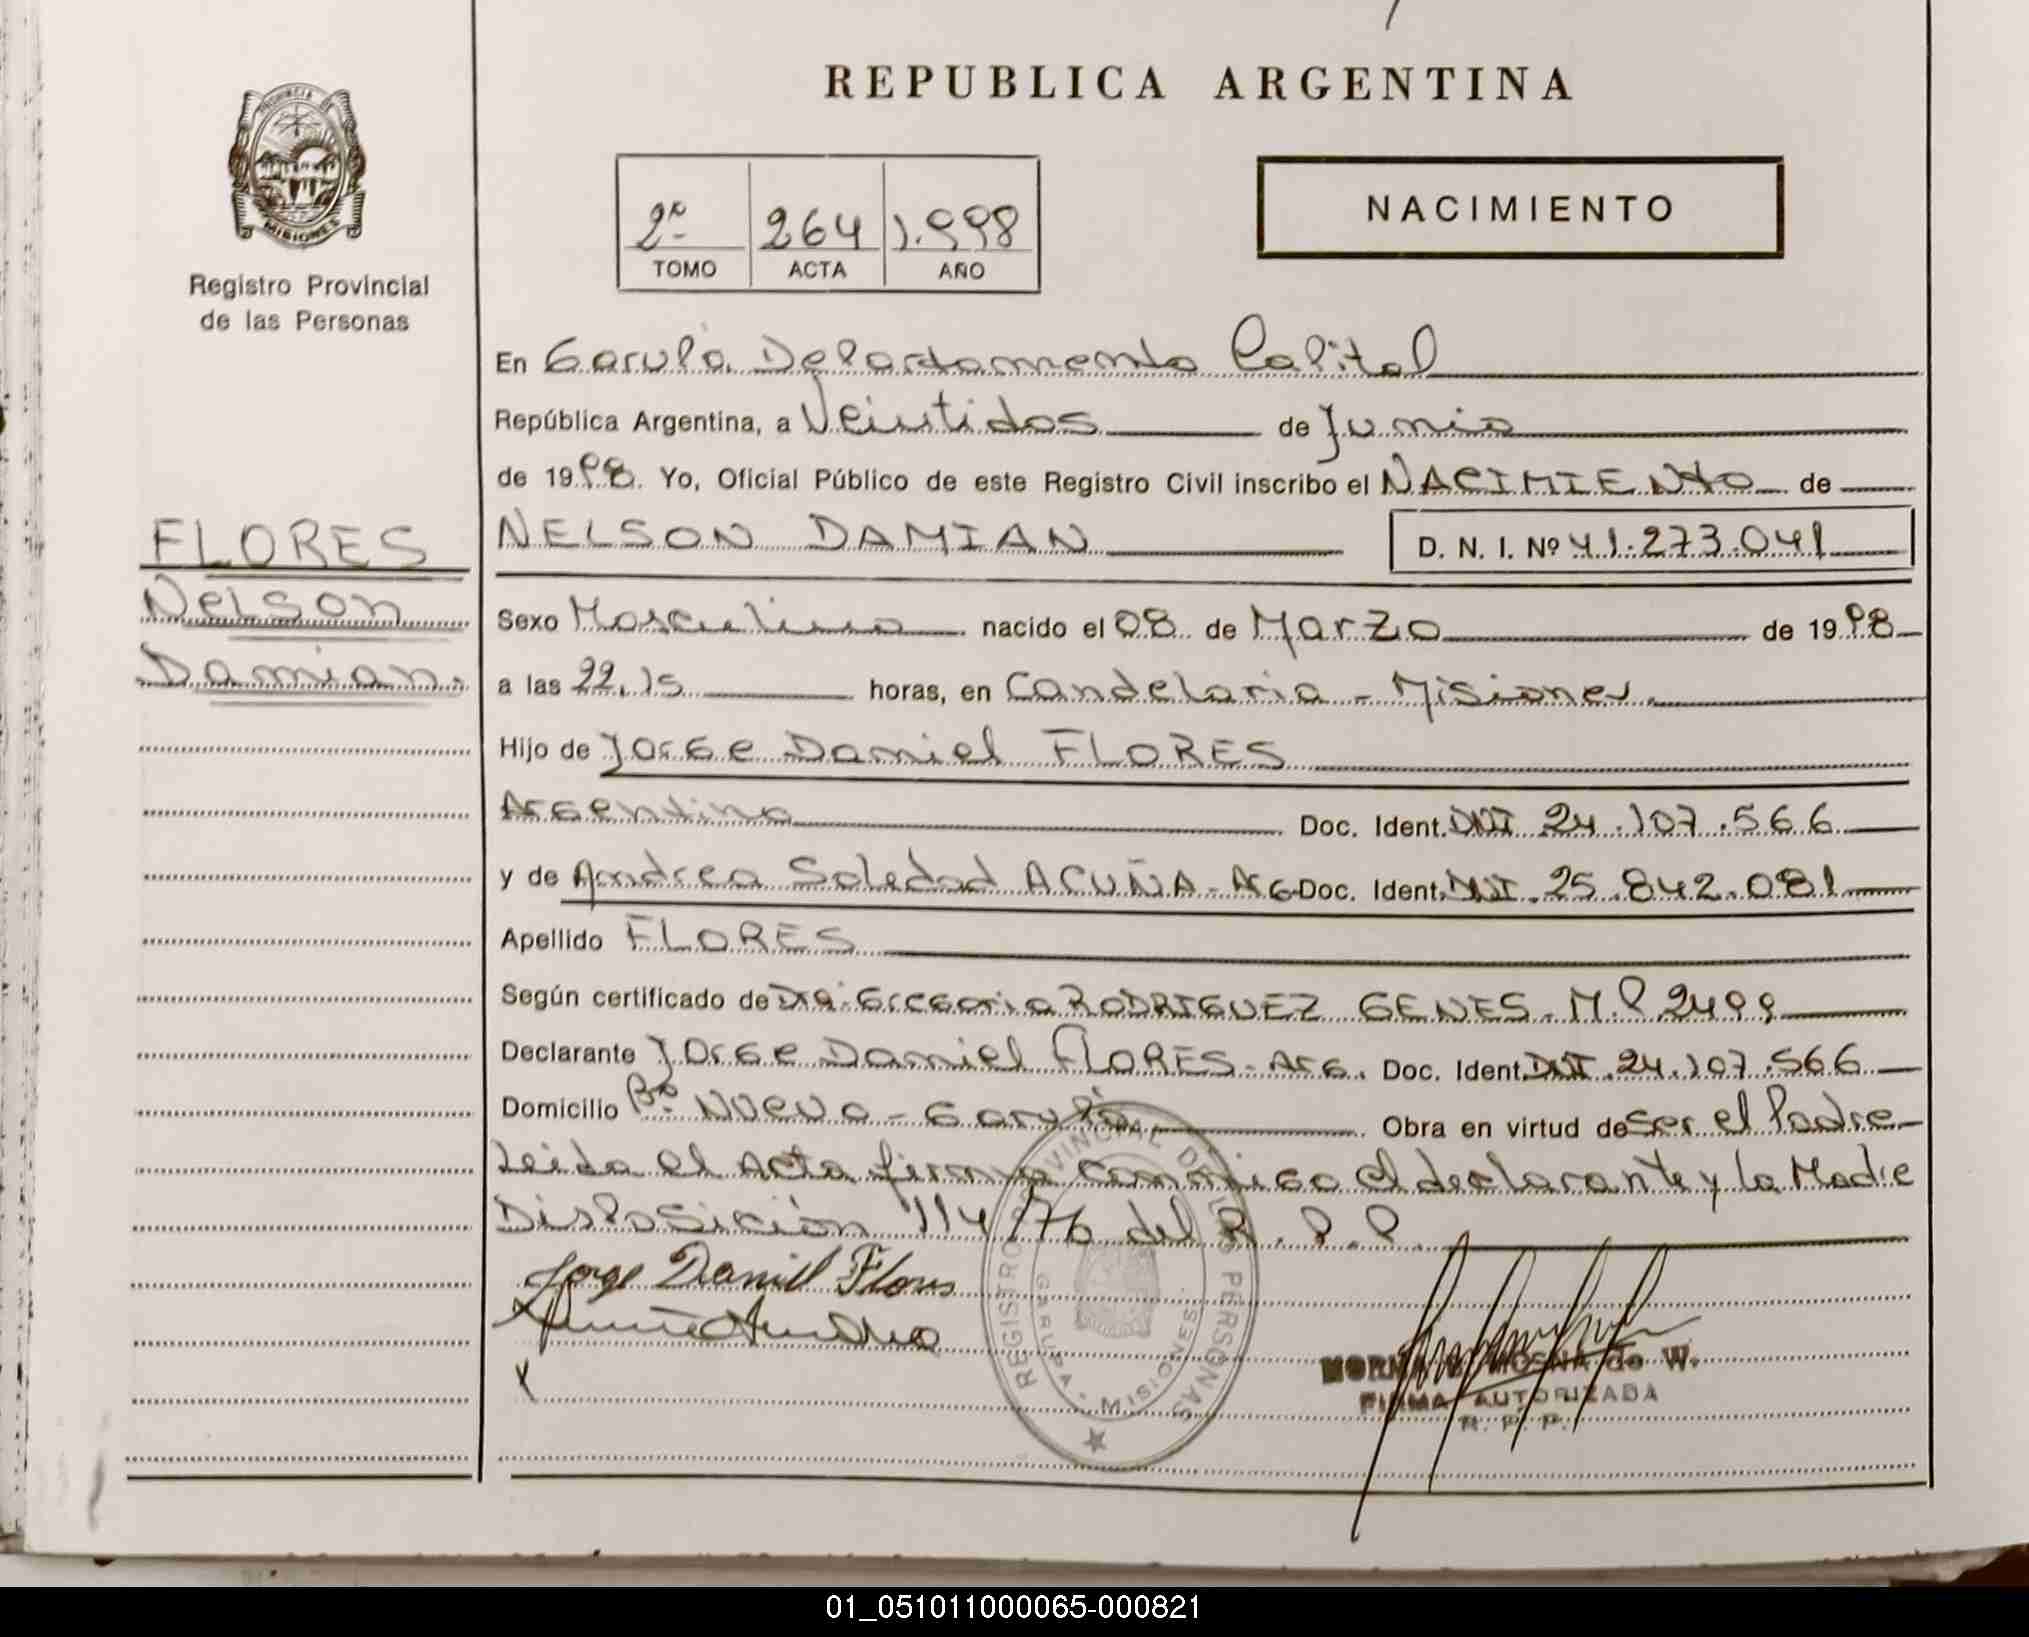 REPUBLICA ARGENTINA
PROVINCIA DE
MISIONES
Registro Provincial
de las Personas
2º
TOMO
264
ACTA
1.998
AÑO
NACIMIENTO
En Garupá, Departamento Capital
República Argentina, a Veintidos de Junio
de 1998. Yo, Oficial Público de este Registro Civil inscribo el NACIMIENTO de
FLORES
Nelson
Damian.
NELSON DAMIAN
D. N. I. Nº 41.273.041
Sexo Masculino nacido el 08 de Marzo de 1998
a las 22,15 horas, en Candelaria - Misiones.
Hijo de Jorge Daniel FLORES
Argentino Doc. Ident. DNI 24.107.566
y de Andrea Soledad ACUÑA - Arg Doc. Ident. DNI. 25.842.081
Apellido FLORES
Según certificado de Dra. Gregoria RODRIGUEZ GENES - M.P. 2499
Declarante Jorge Daniel FLORES - Arg. Doc. Ident. DNI. 24.107.566
Domicilio Bº Nuevo - Garupá. Obra en virtud de ser el Padre
Leida el Acta firma conmigo el declarante y la Madre
Disposición 114/76 del R.P.P.
Jorge Daniel Flores
REGISTRO PROVINCIAL DE LAS PERSONAS
GARUPA - MISIONES
de W.
FIRMA AUTORIZADA
R. P. P.
01_051011000065-000821